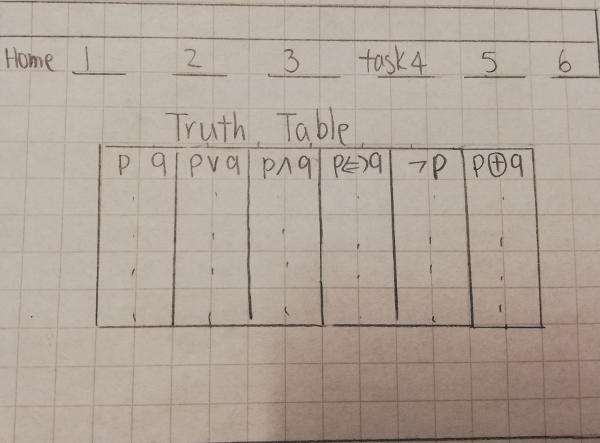 Home 1 2 3 task4 5 6
Truth Table
p q p∨q p∧q p⇔q ¬p p⊕q